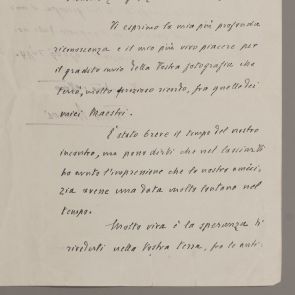 Vi esprimo la mia più profonda
riconoscenza e il mio più vivo piacere per
il gradito invio della Vostra fotografia che
terrò, molto prezioso ricordo, fra quelle dei
miei Maestri.
È stato breve il tempo del nostro
incontro, ma posso dirvi che nel lasciarvi
ho avuto l'impressione che la nostra amici-
zia avesse una data molto lontana nel
tempo.
Molto viva è la speranza di
rivedervi nella Vostra terra, fra le anti-